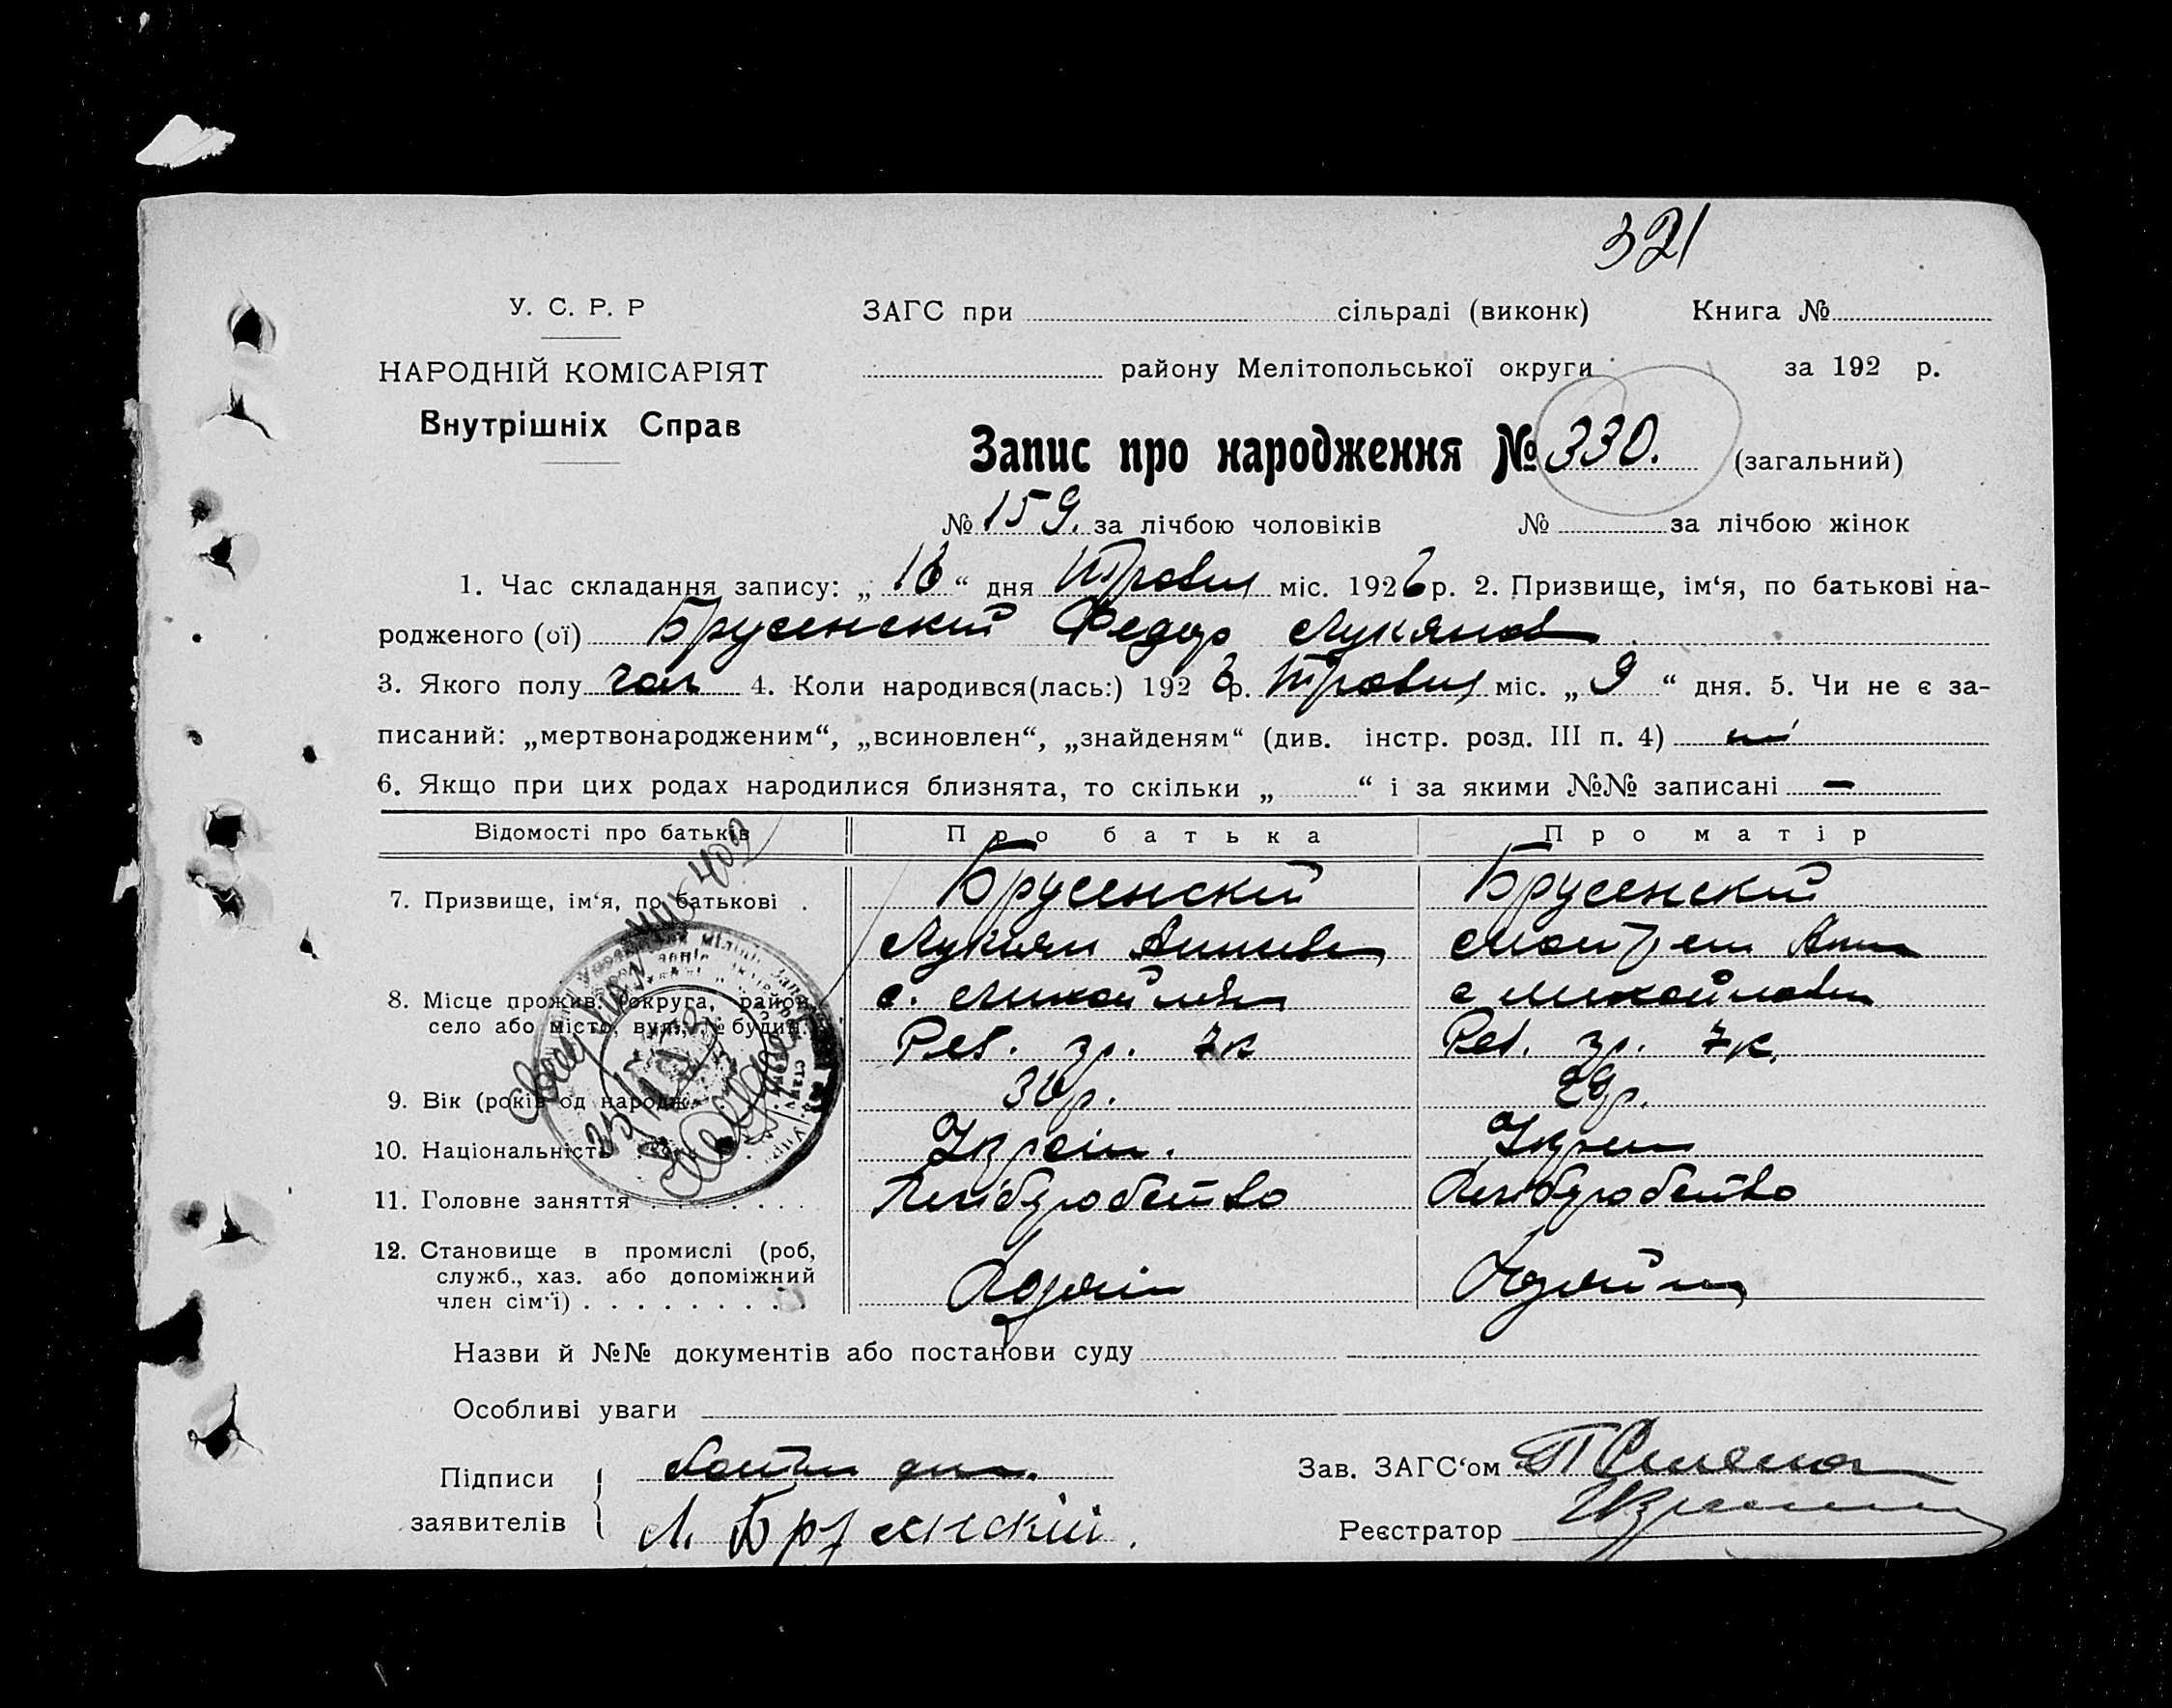 321
У. С. Р. Р
ЗАГС при сільраді (виконк) Книга №
НАРОДНІЙ КОМІСАРІЯТ
району Мелітопольської округи за 192 р.
Внутрішніх Справ
Запис про народження № 330. (загальний)
№ 159. за лічбою чоловіків № за лічбою жінок
1. Час складання запису: „ 16 “ дня Травня міс. 1926 р. 2. Призвище, ім‘я, по батькові на-
родженого (ої) Брусенский Федор Лукянов
3. Якого полу чол 4. Коли народився(лась:) 1926 р. Травня міс. „ 9 “ дня. 5. Чи не є за-
писаний: „мертвонародженим“, „всиновлен“, „знайденям“ (див. інстр. розд. III п. 4) ні
6. Якщо при цих родах народилися близнята, то скільки „ “ і за якими №№ записані —
Відомості про батьків Про батька Про матір
7. Призвище, ім‘я, по батькові . Брусенский Брусенский
Лукян
8. Місце прожив. (округа, район, с. Михайлівка с Михайловка
село або місто, вул., № будин. Рев. гр. 7к Рев. гр. 7к.
9. Вік (років од народж. 30р. 29р.
10. Національність Украін. Украин
11. Головне заняття . . . . . . . Хліборобство Хліборобство
12. Становище в промислі (роб,
служб., хаз. або допоміжний Хозяїн Хозяйка
член сім‘ї) . . . . . . . . .
Назви й №№ документів або постанови суду
Особливі уваги
Підписи
заявителів Л. Брусенскій.
Зав. ЗАГС‘ом
Реєстратор